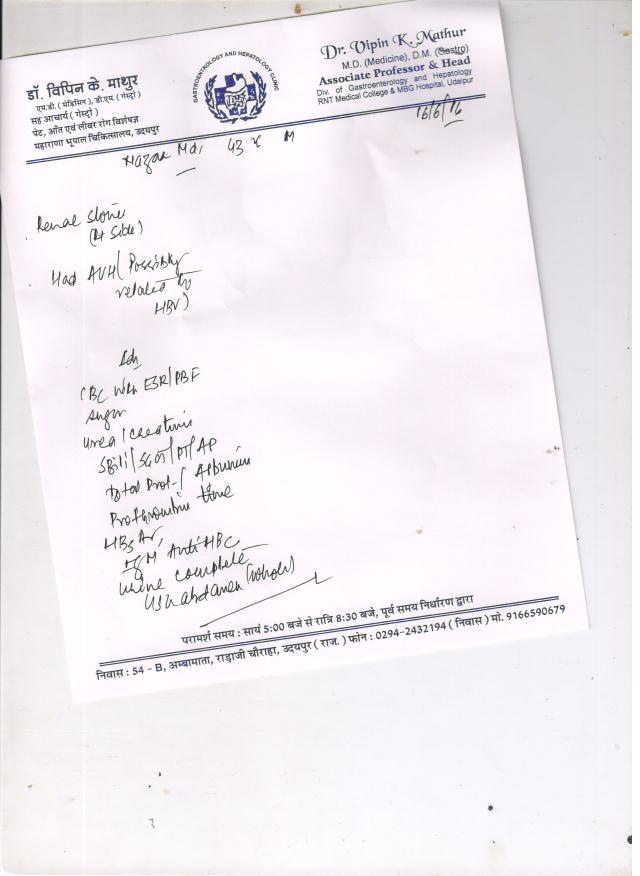 डॉ. विपिन के. माथुर
एम.डी. ( मेडिसिन ), डी.एम. ( गेस्ट्रो )
सह आचार्य ( गेस्ट्रो )
पेट, आँत एवं लीवर रोग विशेषज्ञ
महाराणा भूपाल चिकित्सालय, उदयपुर
GASTROENTROLOGY AND HEPATOLOGY CLINIC
Dr. Vipin K. Mathur
M.D. (Medicine), D.M. (Gastro)
Associate Professor & Head
Div. of Gastroenterology and Hepatology
RNT Medical College & MBG Hospital, Udaipur
16/6/16
Md. 43 M
Renal stone
(Rt side)
Had AVH (Possibly
related to
HBV)
Adv
CBC with ESR/PBF
Sugar
Urea/creatinin
SBili/SGOT/PT/AP
Total Prot-/Albumin
Prothrombin time
HBsAg,
IgM Anti HBC
Urine complete
USG abdomen (whole)
परामर्श समय : सायं 5:00 बजे से रात्रि 8:30 बजे, पूर्व समय निर्धारण द्वारा
निवास : 54 - B, अम्बामाता, राड़ाजी चौराहा, उदयपुर ( राज. ) फोन : 0294-2432194 ( निवास ) मो. 9166590679